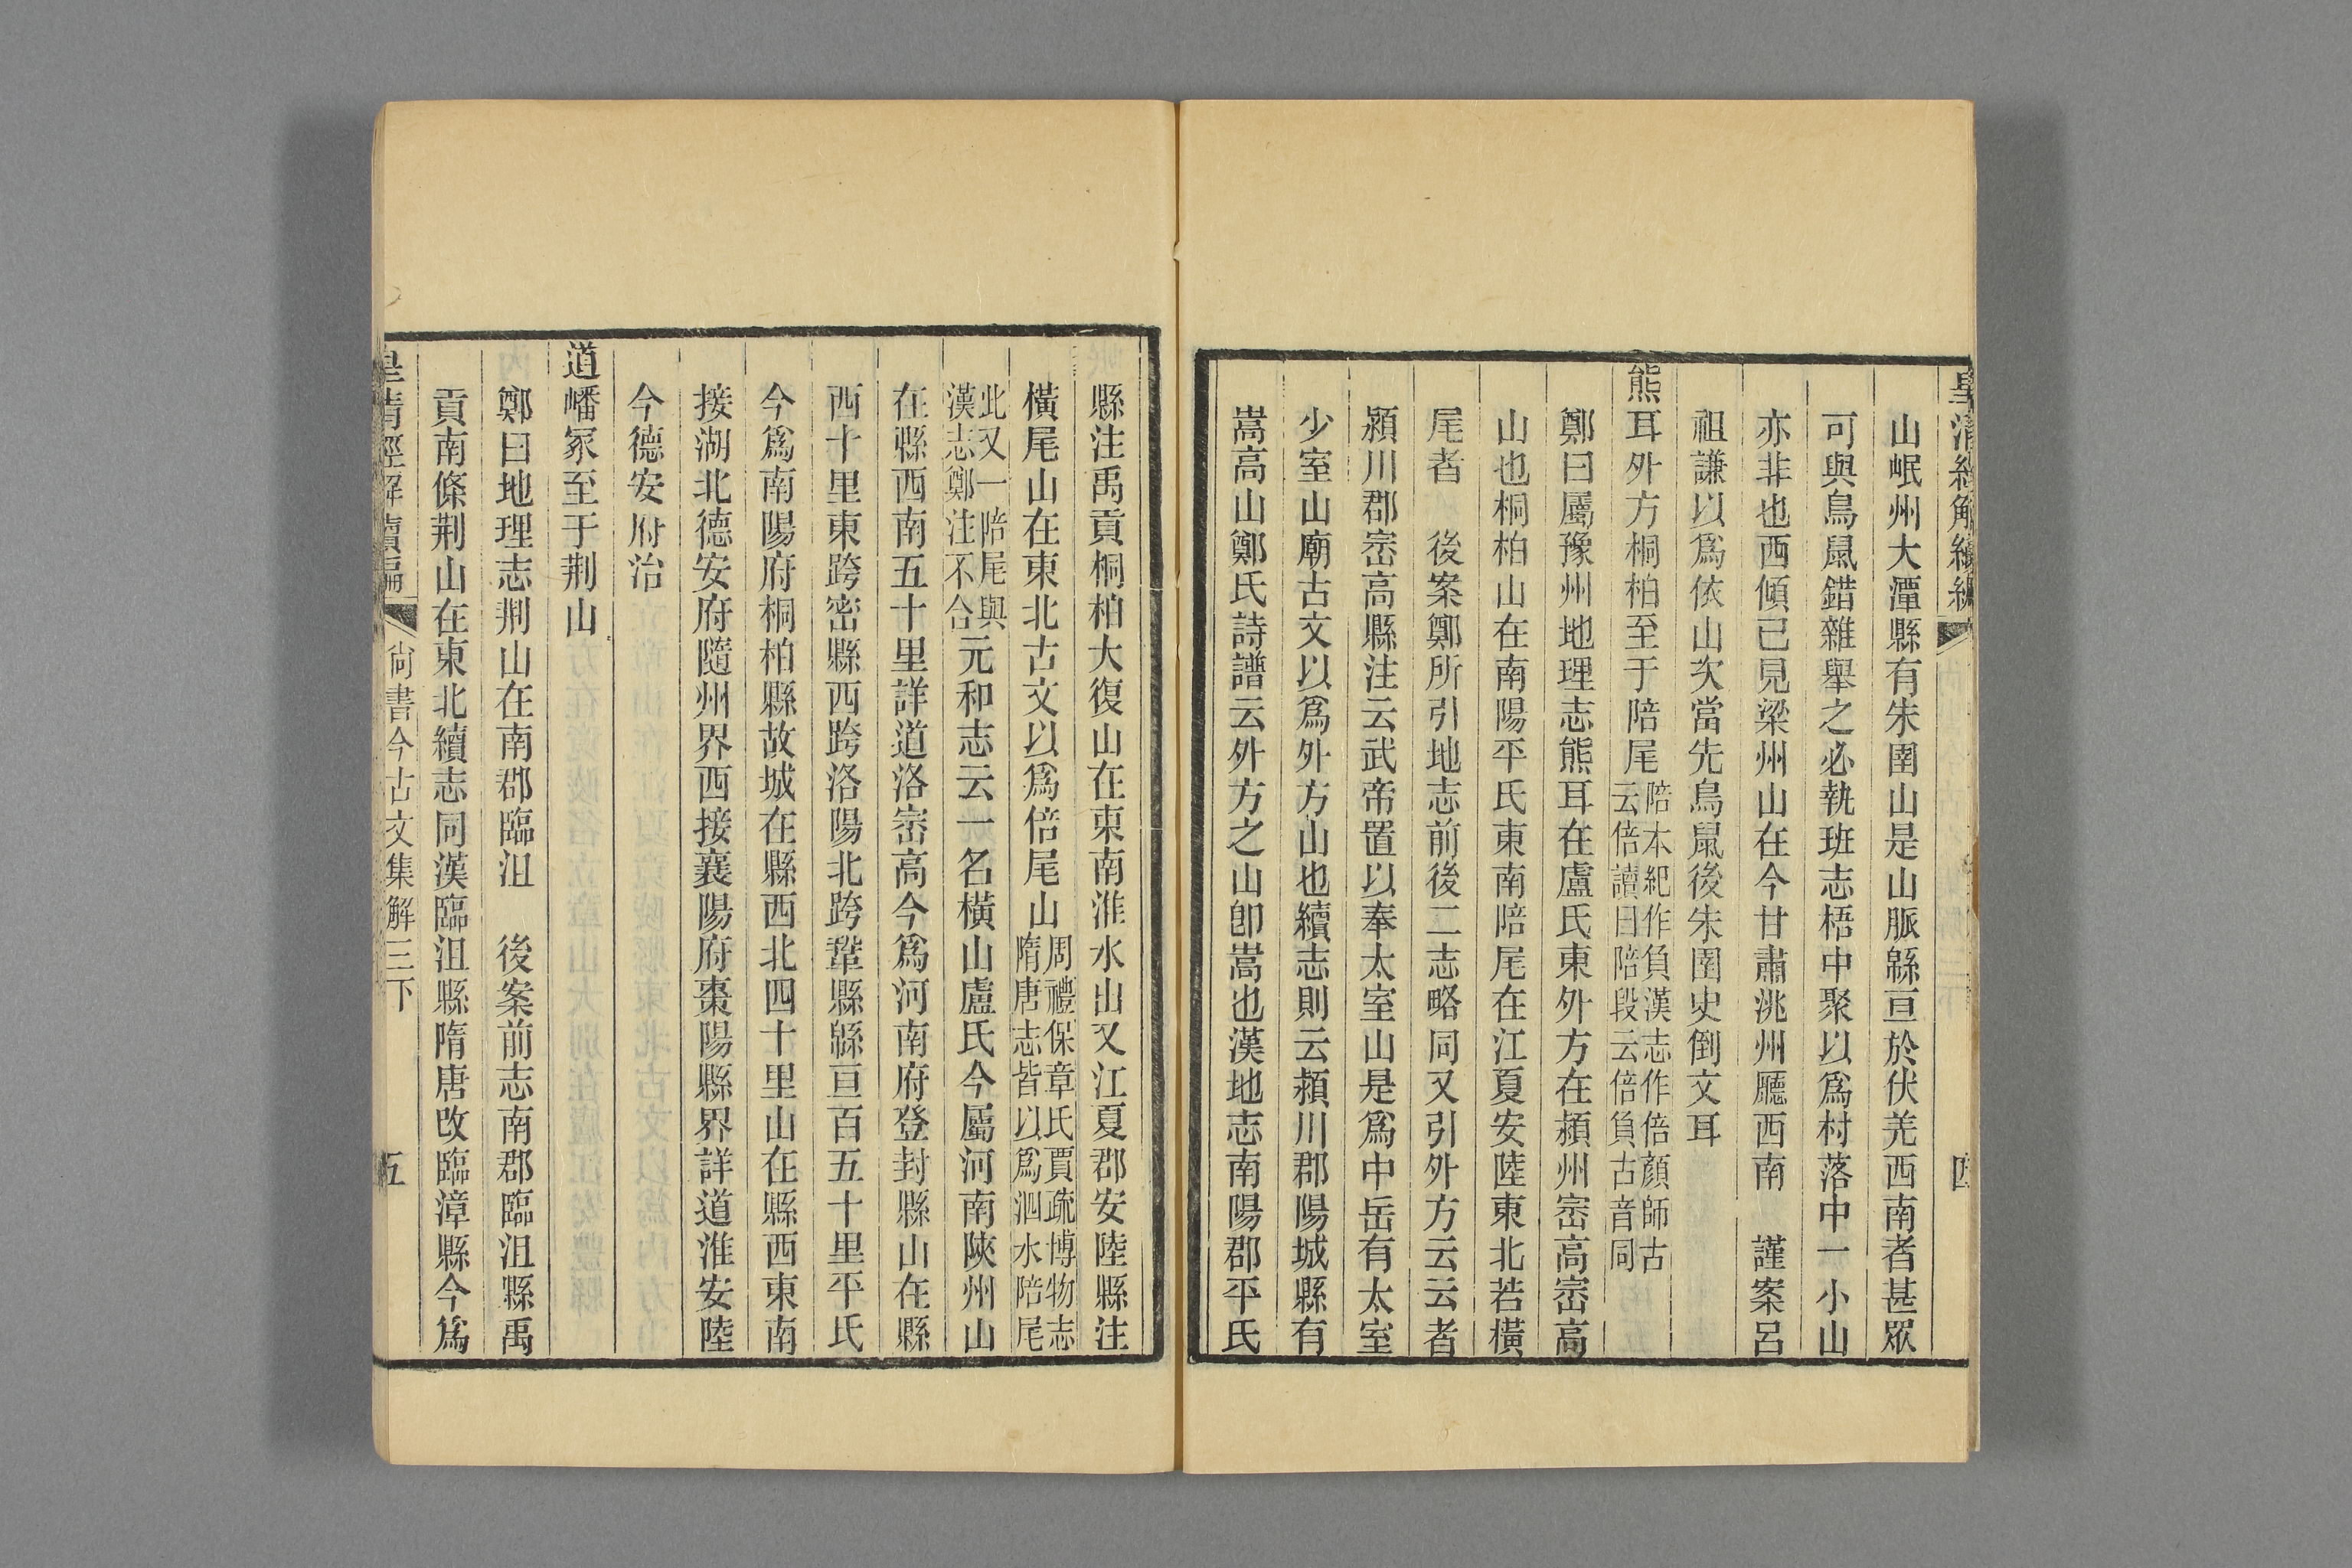 皇清經解續編
四
山岷州大潭縣有朱圉山是山脈緜亘於伏羌西南者甚眾
可與鳥鼠錯雜舉之必執班志梧中聚以爲村落中一小山
亦非也西傾已見梁州山在今甘肅洮州廳西南　謹案呂
祖謙以爲依山次當先鳥鼠後朱圉史倒文耳
熊耳外方桐柏至于陪尾陪本紀作負漢志作倍顏師古
云倍讀曰陪段云倍負古音同
鄭曰屬豫州地理志熊耳在盧氏東外方在潁州崈高崈高
山也桐柏山在南陽平氏東南陪尾在江夏安陸東北若橫
尾者　後案鄭所引地志前後二志略同又引外方云云者
潁川郡崈高縣注云武帝置以奉太室山是爲中岳有太室
少室山廟古文以爲外方山也續志則云潁川郡陽城縣有
嵩高山鄭氏詩譜云外方之山卽嵩也漢地志南陽郡平氏
縣注禹貢桐柏大復山在東南淮水出又江夏郡安陸縣注
橫尾山在東北古文以爲倍尾山周禮保章氏賈疏博物志
隋唐志皆以爲泗水陪尾
此又一陪尾與
漢志鄭注不合元和志云一名橫山盧氏今屬河南陝州山
在縣西南五十里詳道洛崈高今爲河南府登封縣山在縣
西十里東跨密縣西跨洛陽北跨鞏縣緜亘百五十里平氏
今爲南陽府桐柏縣故城在縣西北四十里山在縣西東南
接湖北德安府隨州界西接襄陽府棗陽縣界詳道淮安陸
今德安府治
道嶓冢至于荆山
鄭曰地理志荆山在南郡臨沮　後案前志南郡臨沮縣禹
貢南條荆山在東北續志同漢臨沮縣隋唐改臨漳縣今爲
皇清經解續編
尙書今古文集解三下
五